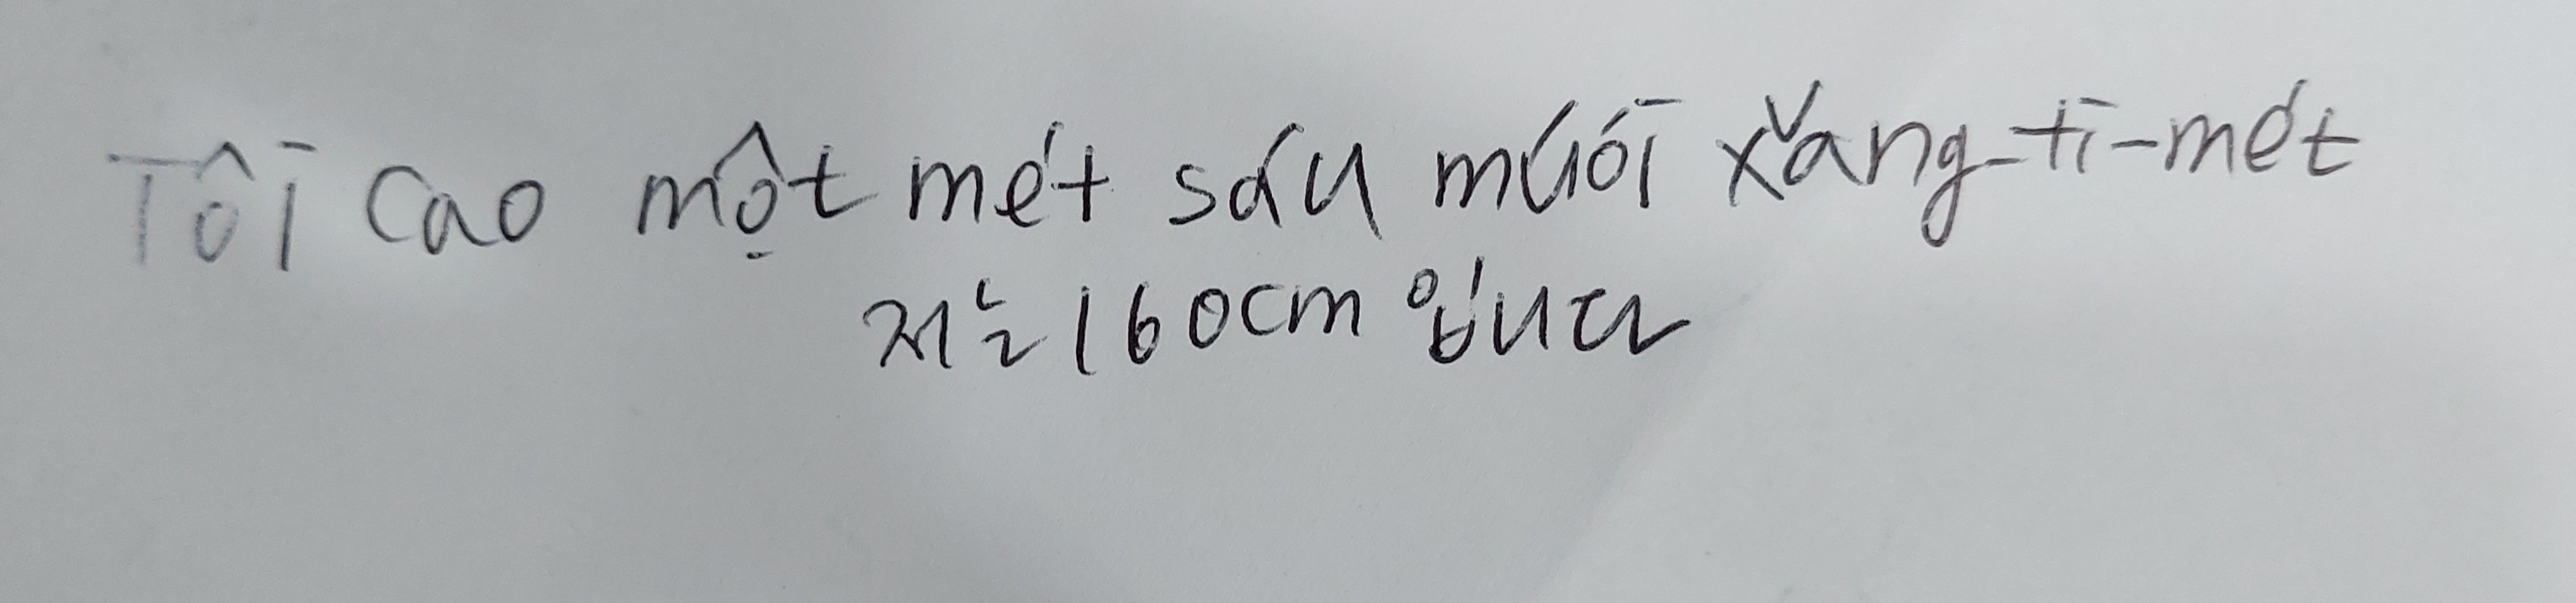 Tôi cao một mét sáu mươi xăng-ti-mét
저는 160cm 입니다